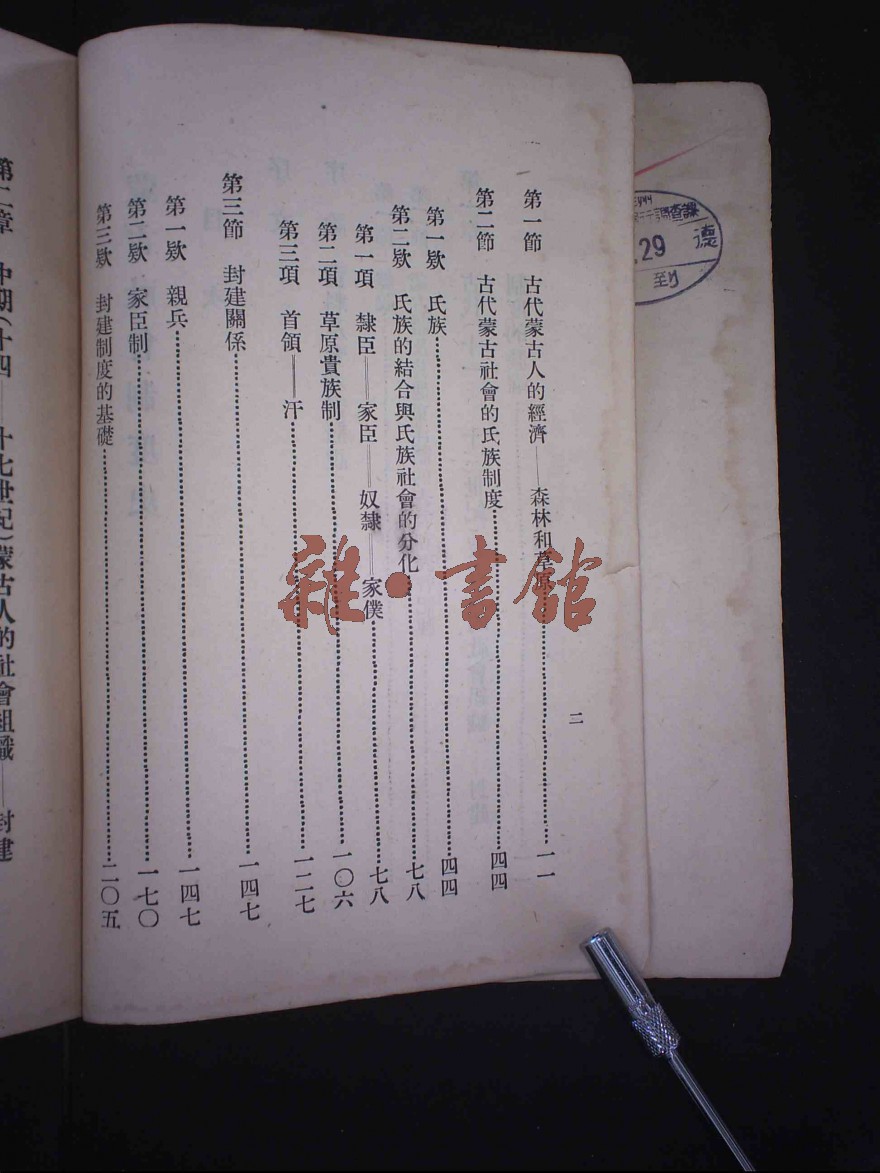 二
第一節　古代蒙古人的經濟——森林和草原……一一
第二節　古代蒙古社會的氏族制度……四四
第一欵　氏族……四四
第二欵　氏族的結合與氏族社會的分化……七八
第一項　隸臣——家臣——奴隸——家僕……七八
第二項　草原貴族制……一〇六
第三項　首領——汗……一二七
第三節　封建關係……一四七
第一欵　親兵……一四七
第二欵　家臣制……一七〇
第三欵　封建制度的基礎……二〇五
第二章　中期(十四——十七世紀)蒙古人的社會組織——封建
雜·書館
德
29
到